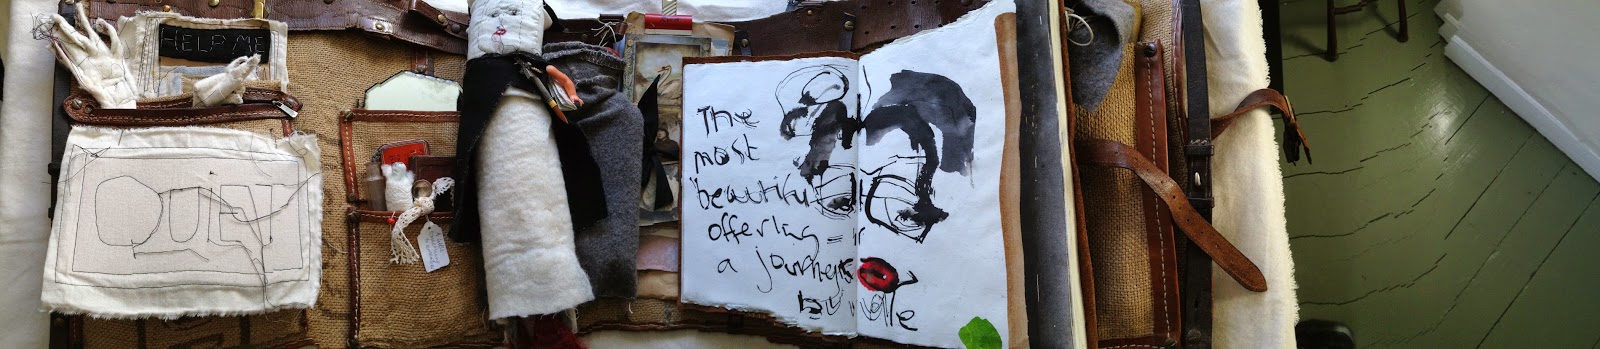 HELP ME
QUIET
The
most
beautiful
offering =
a journeys
bundle